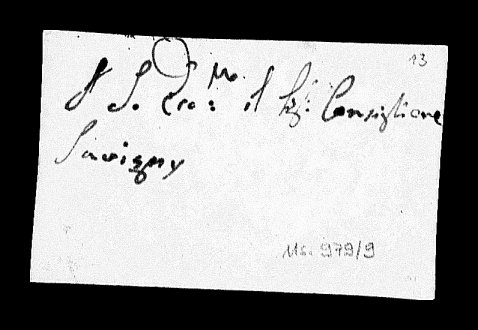 13
A S. Ecc: il Sig: Consigliere
Savigny
Ms. 979/9